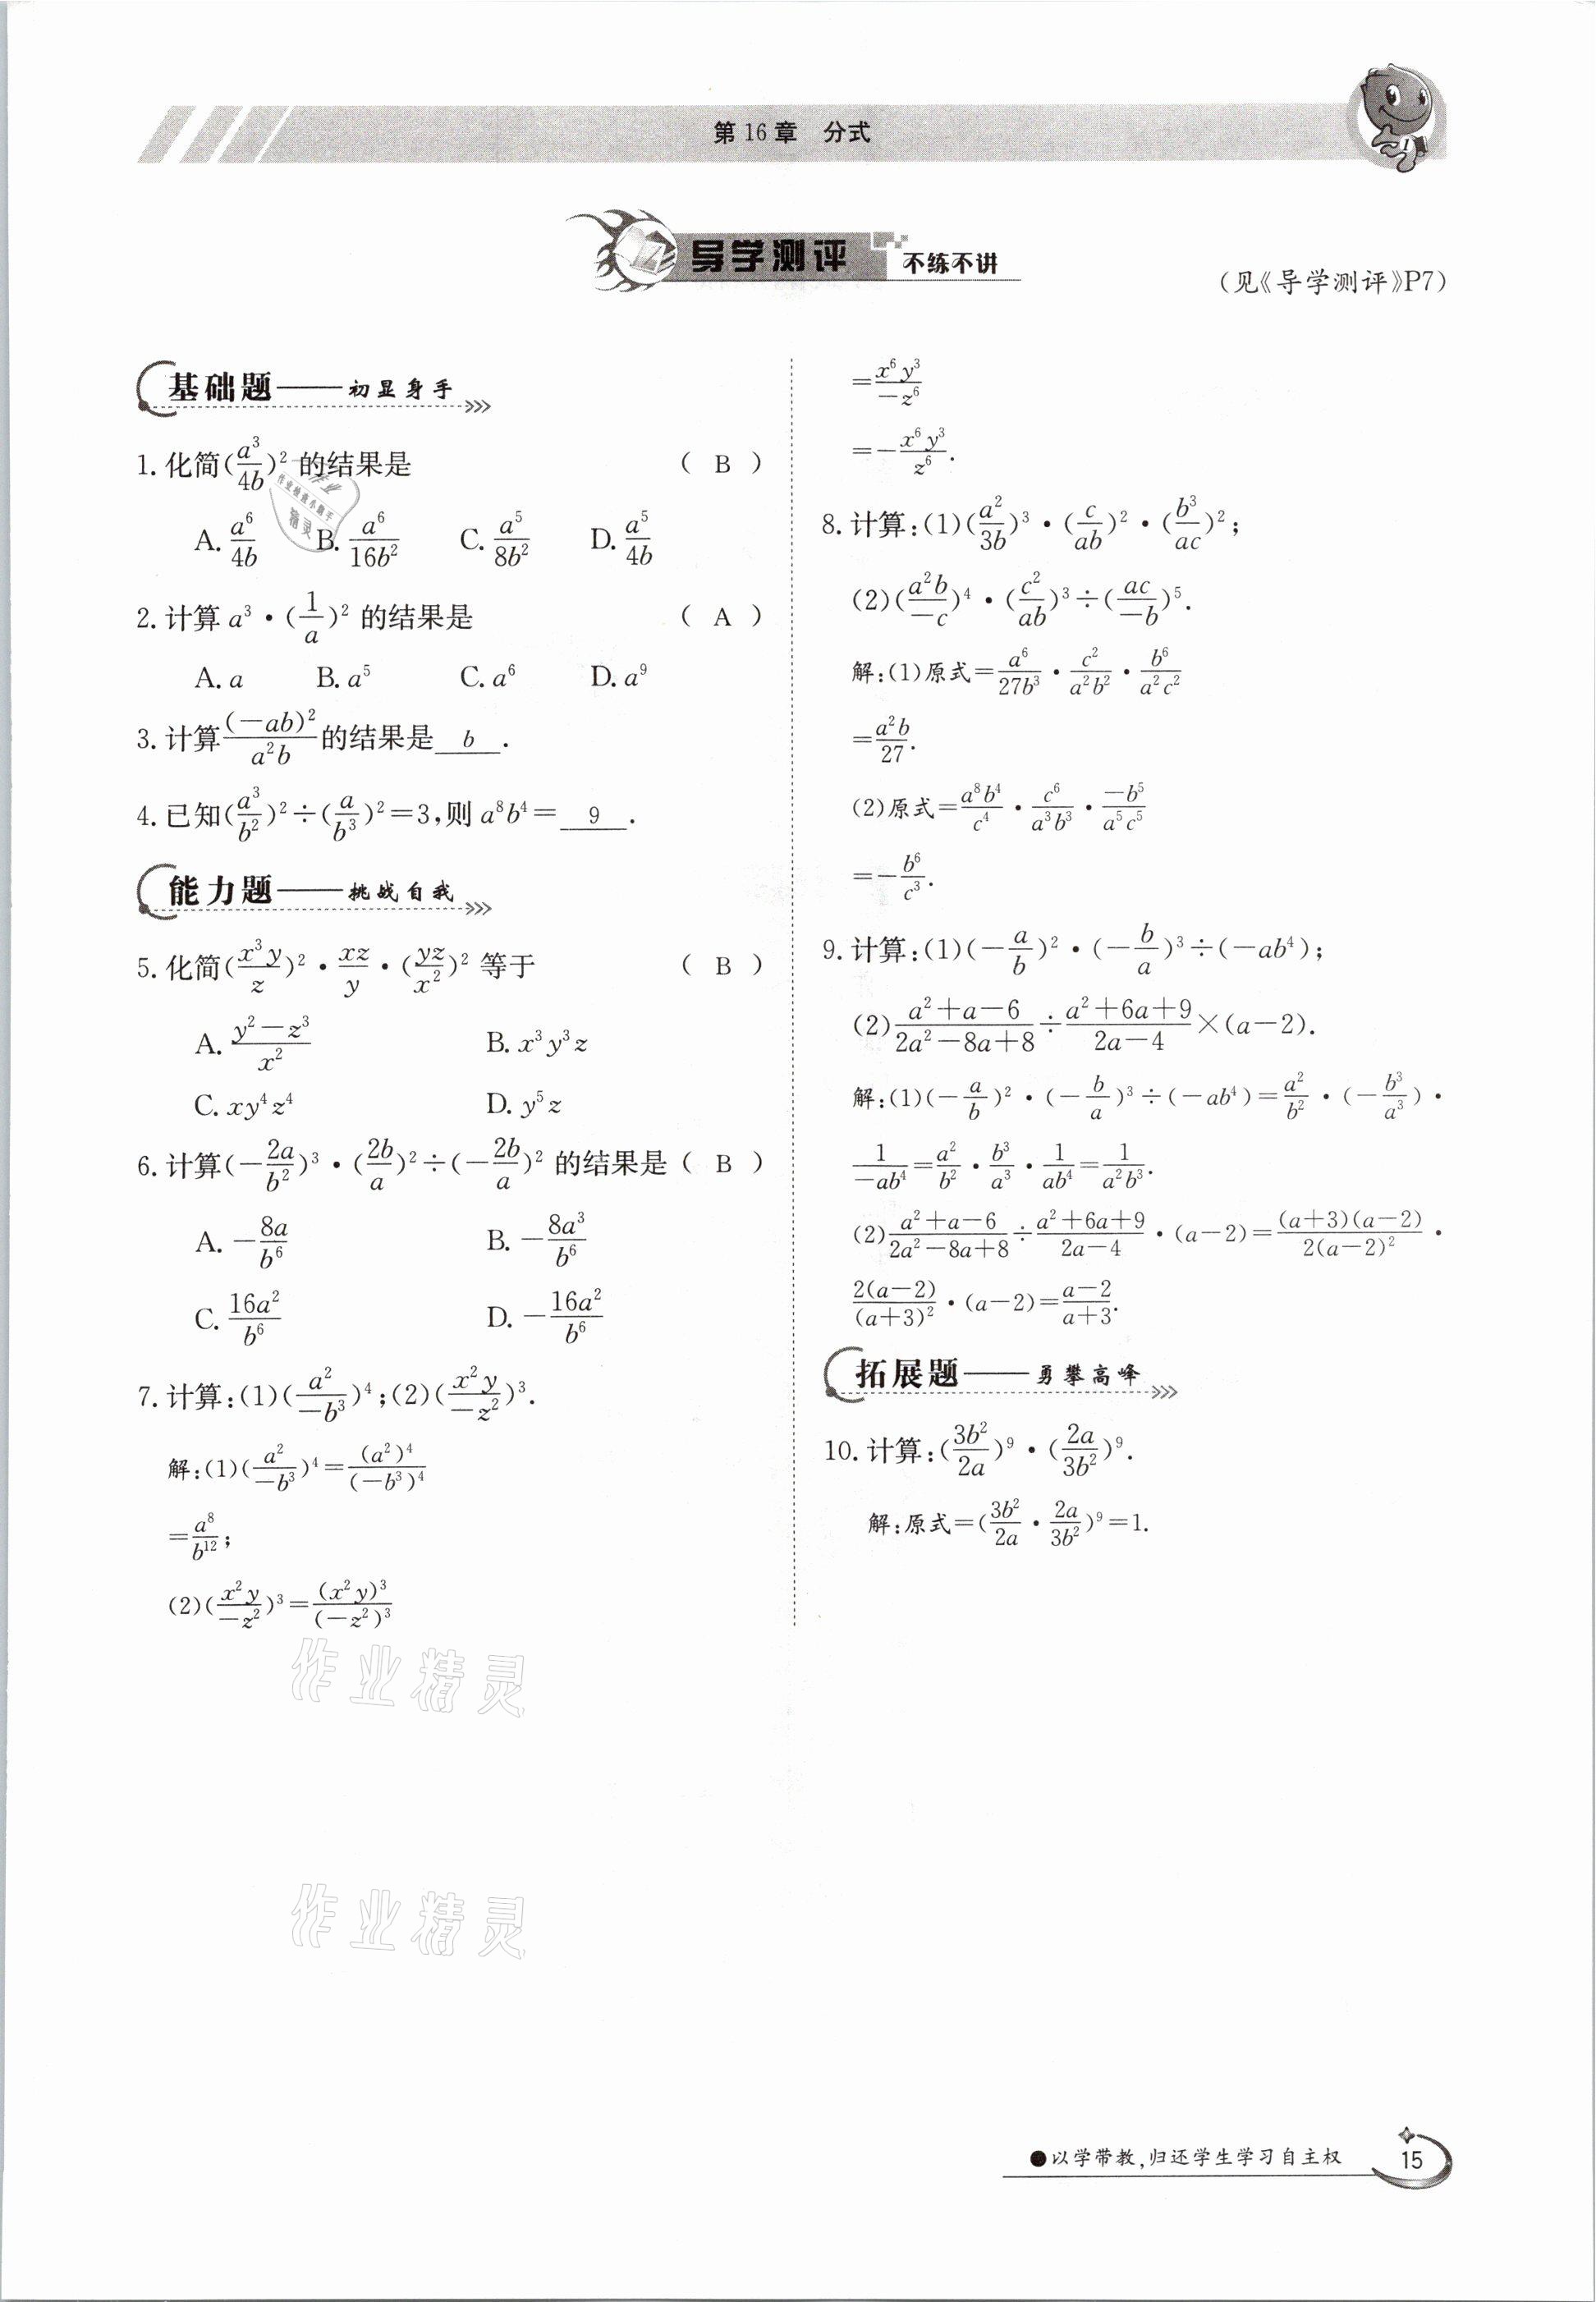 第16章 分式
导学测评 不练不讲
(见《导学测评》P7)
基础题——初显身手
1. 化简(a³/4b)² 的结果是 ( B )
A. a⁶/4b B. a⁶/16b² C. a⁵/8b² D. a⁵/4b
2. 计算 a³·(1/a)² 的结果是 ( A )
A. a B. a⁵ C. a⁶ D. a⁹
3. 计算(-ab)²/a²b的结果是 b .
4. 已知(a³/b²)²÷(a/b³)²=3,则 a⁸b⁴= 9 .
能力题——挑战自我
5. 化简(x³y/z)²·xz/y·(yz/x²)² 等于 ( B )
A. (y²-z³)/x² B. x³y³z
C. xy⁴z⁴ D. y⁵z
6. 计算(-2a/b²)³·(2b/a)²÷(-2b/a)² 的结果是 ( B )
A. -8a/b⁶ B. -8a³/b⁶
C. 16a²/b⁶ D. -16a²/b⁶
7. 计算:(1)(a²/-b³)⁴;(2)(x²y/-z²)³.
解:(1)(a²/-b³)⁴=(a²)⁴/(-b³)⁴
=a⁸/b¹²;
(2)(x²y/-z²)³=(x²y)³/(-z²)³
=x⁶y³/-z⁶
=-x⁶y³/z⁶.
8. 计算:(1)(a²/3b)³·(c/ab)²·(b³/ac)²;
(2)(a²b/-c)⁴·(c²/ab)³÷(ac/-b)⁵.
解:(1)原式=a⁶/27b³·c²/a²b²·b⁶/a²c²
=a²b/27.
(2)原式=a⁸b⁴/c⁴·c⁶/a³b³·-b⁵/a⁵c⁵
=-b⁶/c³.
9. 计算:(1)(-a/b)²·(-b/a)³÷(-ab⁴);
(2)(a²+a-6)/(2a²-8a+8)÷(a²+6a+9)/(2a-4)×(a-2).
解:(1)(-a/b)²·(-b/a)³÷(-ab⁴)=a²/b²·(-b³/a³)·
1/-ab⁴=a²/b²·b³/a³·1/ab⁴=1/a²b³.
(2)(a²+a-6)/(2a²-8a+8)÷(a²+6a+9)/(2a-4)·(a-2)=(a+3)(a-2)/2(a-2)²·
2(a-2)/(a+3)²·(a-2)=(a-2)/(a+3).
拓展题——勇攀高峰
10. 计算:(3b²/2a)⁹·(2a/3b²)⁹.
解:原式=(3b²/2a·2a/3b²)⁹=1.
作业精灵
作业精灵
●以学带教,归还学生学习自主权 15